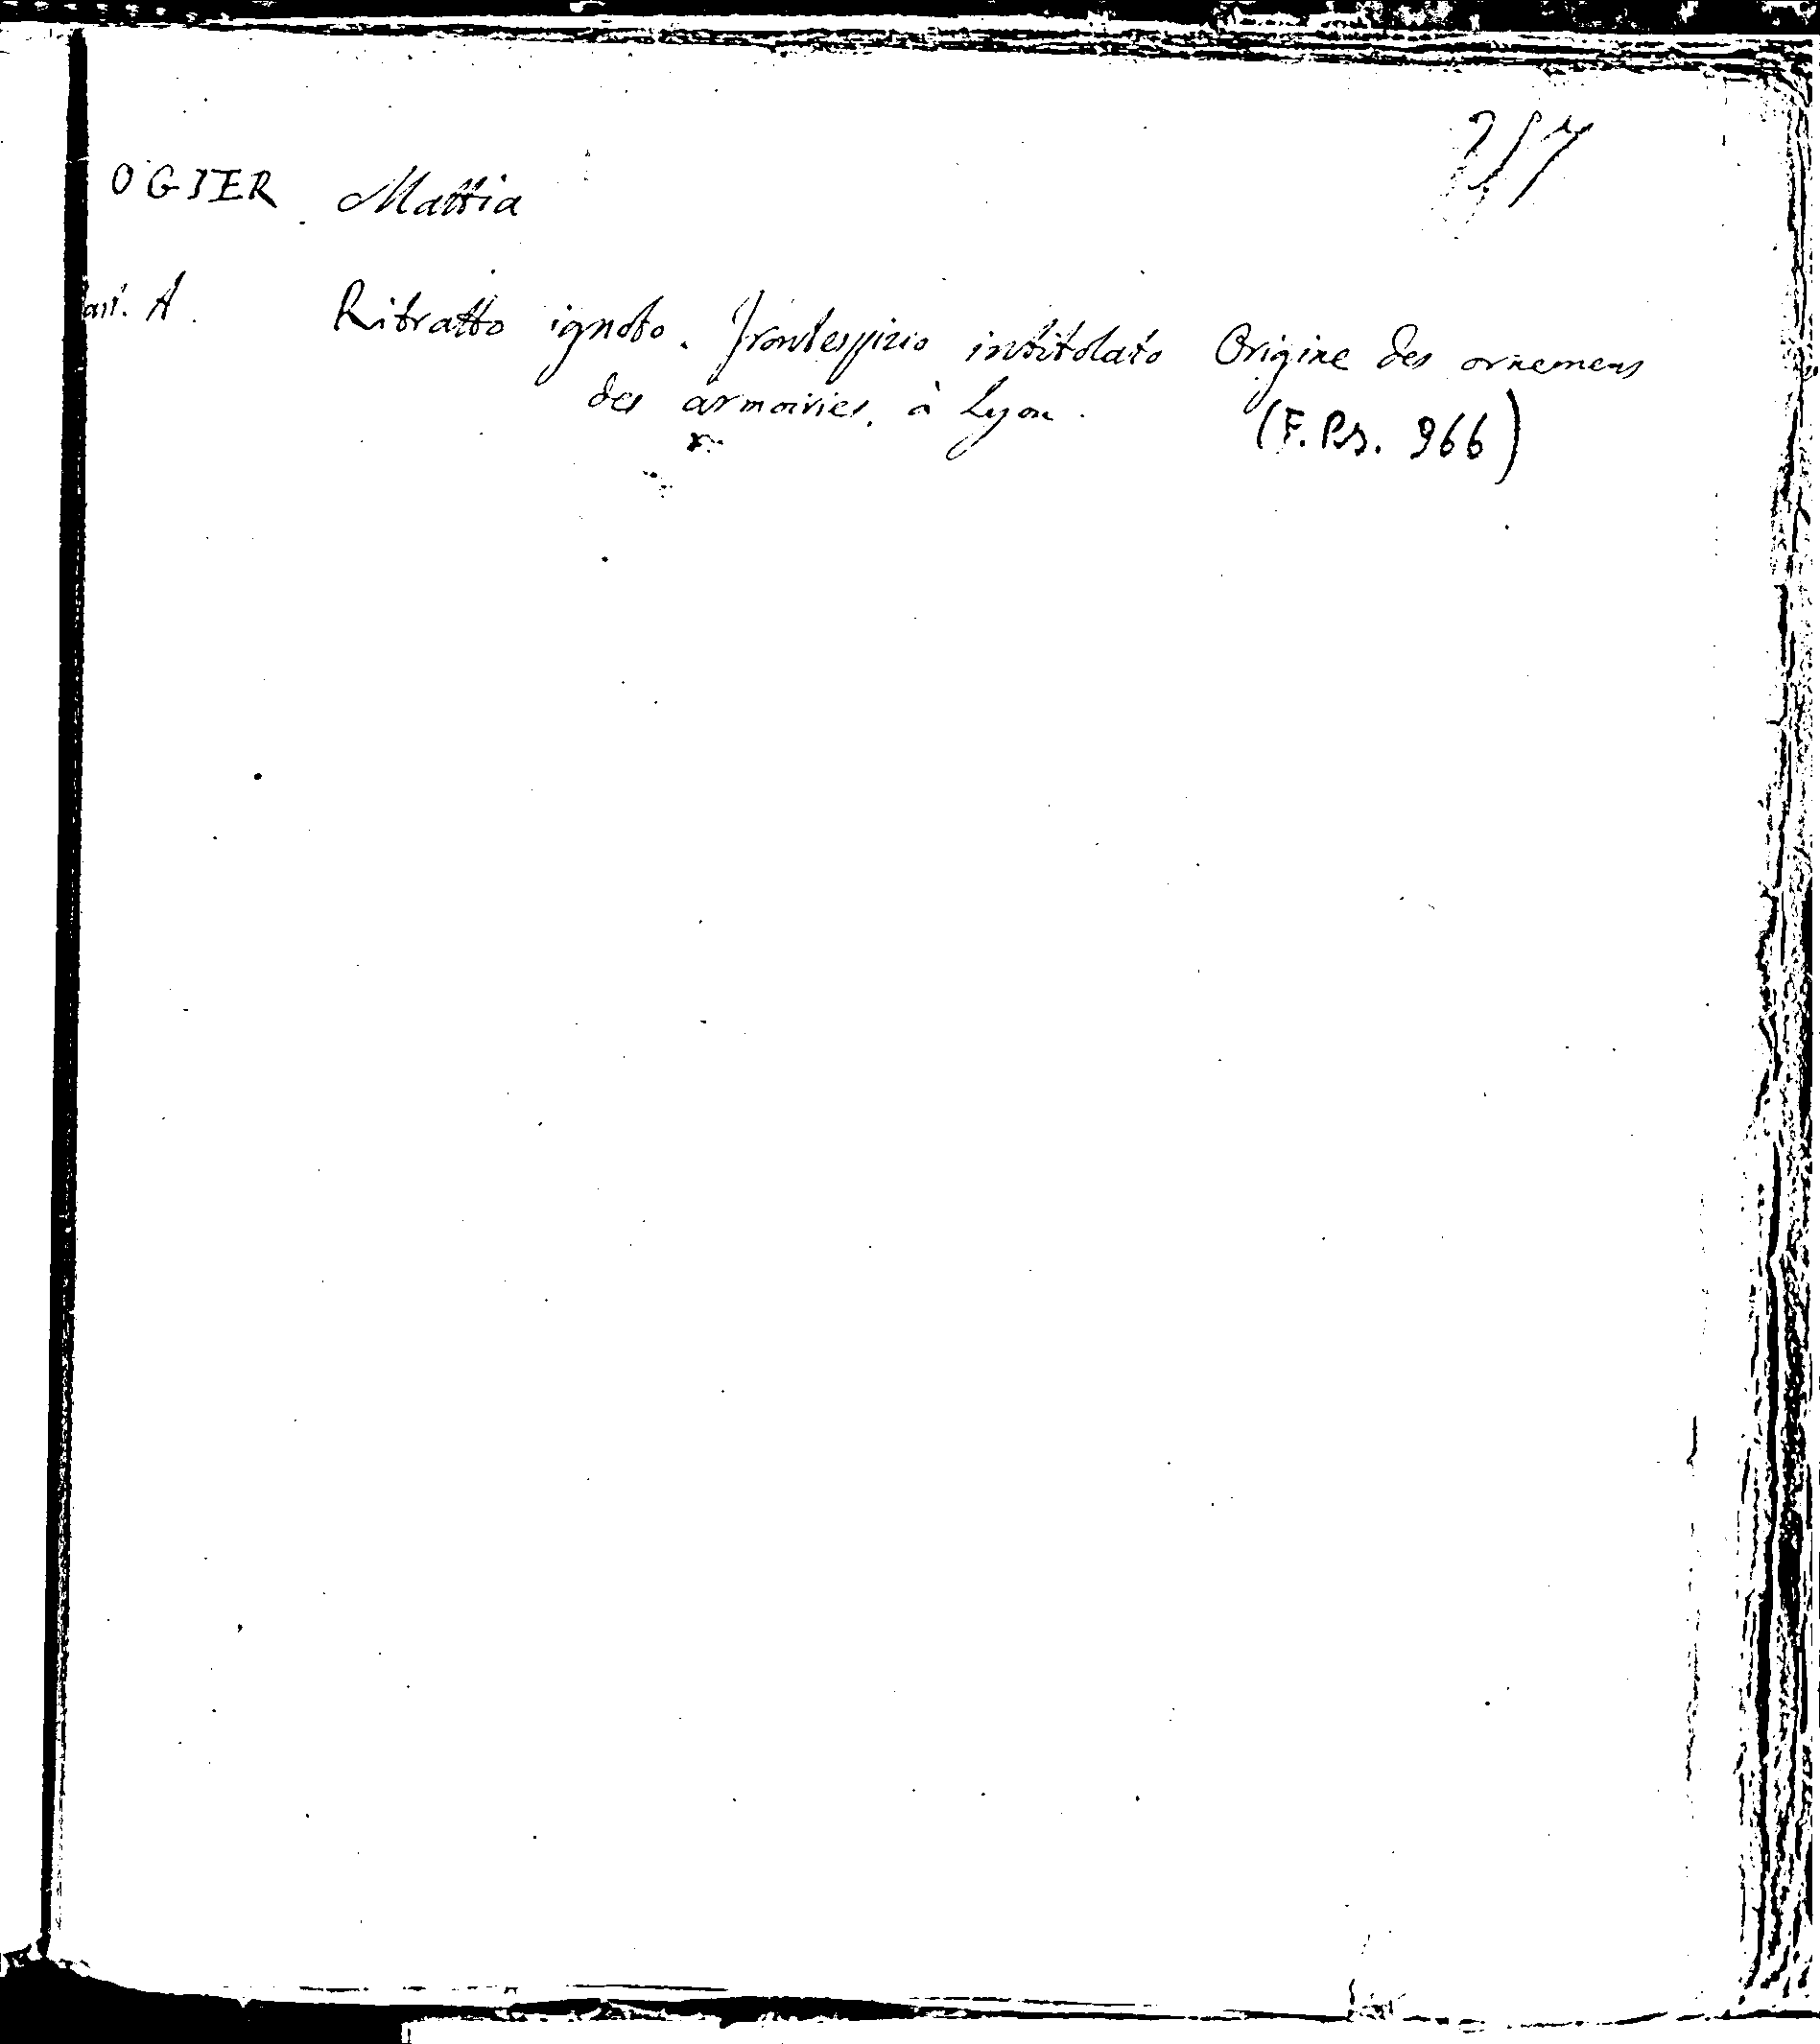 257
OGIER Mattia
art. A. Ritratto ignoto. Frontespizio intitolato Origine des ornemens
des armoiries. à Lyon.
(F.Ps. 966)